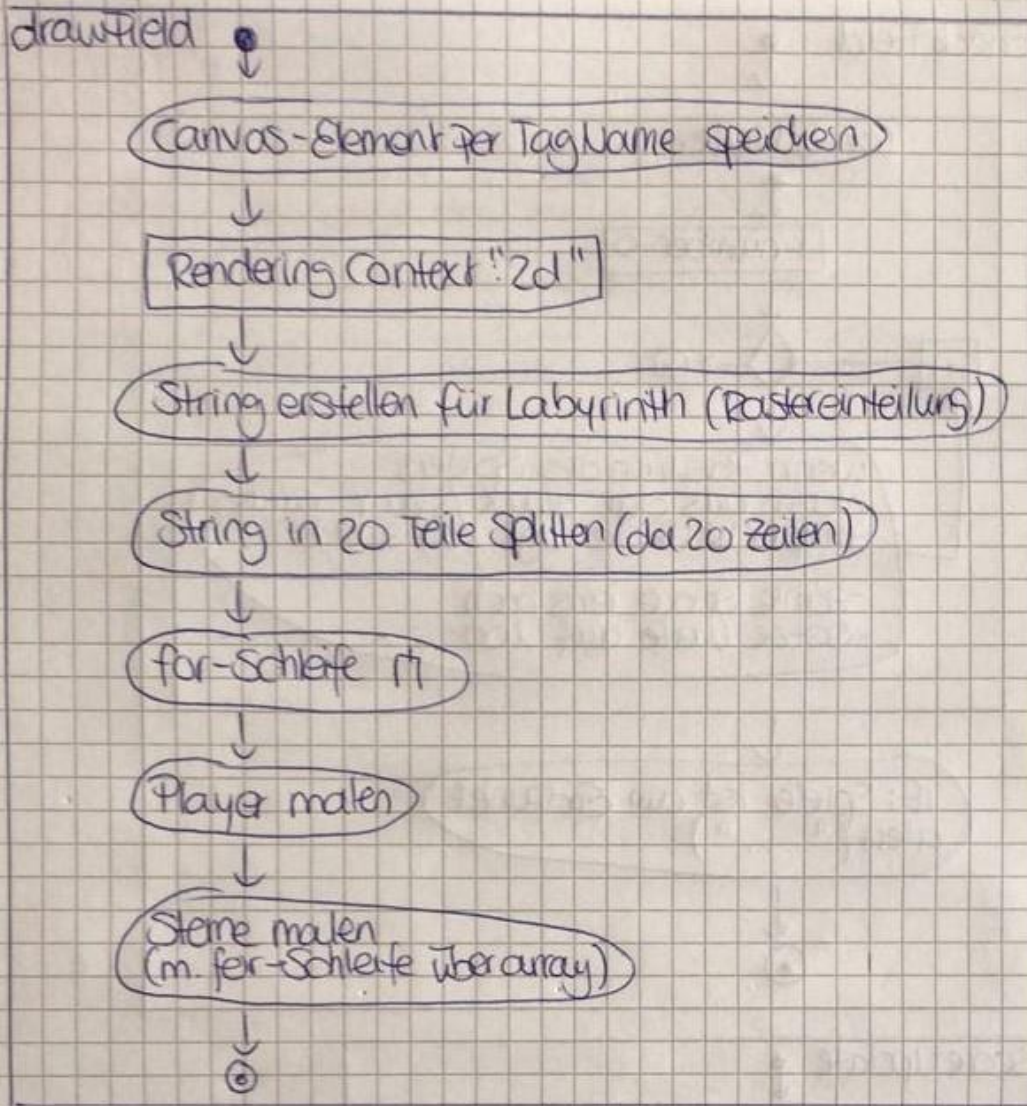 drawField
Canvas-Element per TagName speichern
Rendering Context "2d"
String erstellen für Labyrinth (Rastereinteilung)
String in 20 Teile splitten (da 20 Zeilen)
for-Schleife
Player malen
Sterne malen
(m. for-Schleife über array)